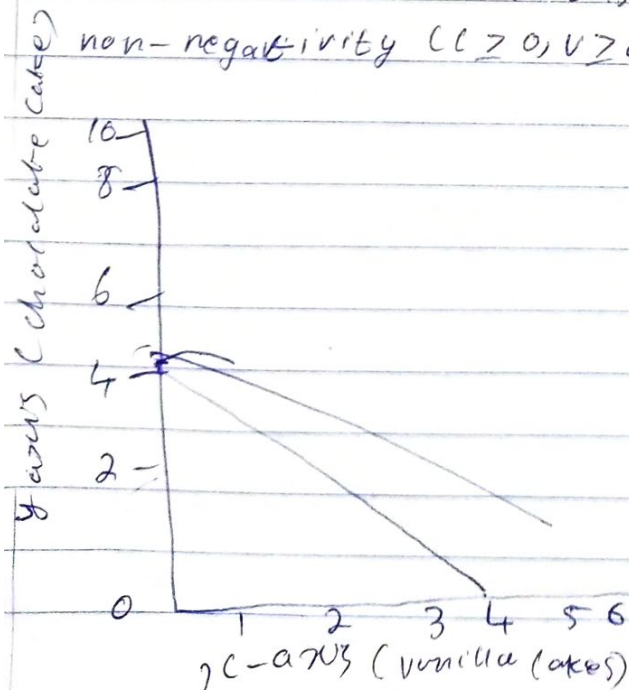 non-negativity (C ≥ 0, V ≥
y axis (Chocolate Cake)
10
8
6
4
2
0
1 2 3 4 5 6
x-axis (vanilla Cakes)